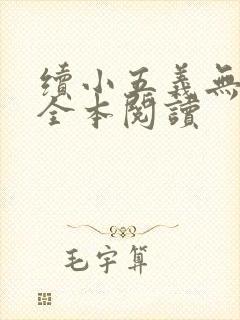 續小五義無
全本閱讀
毛宇算